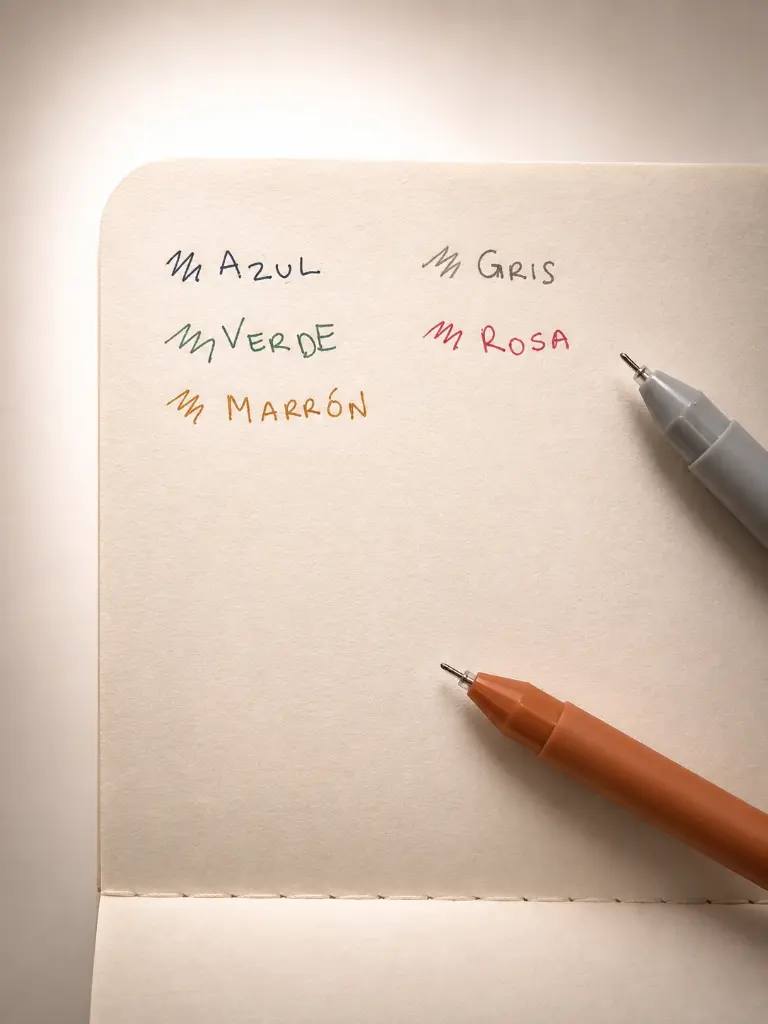 AZUL
VERDE
MARRÓN
GRIS
ROSA